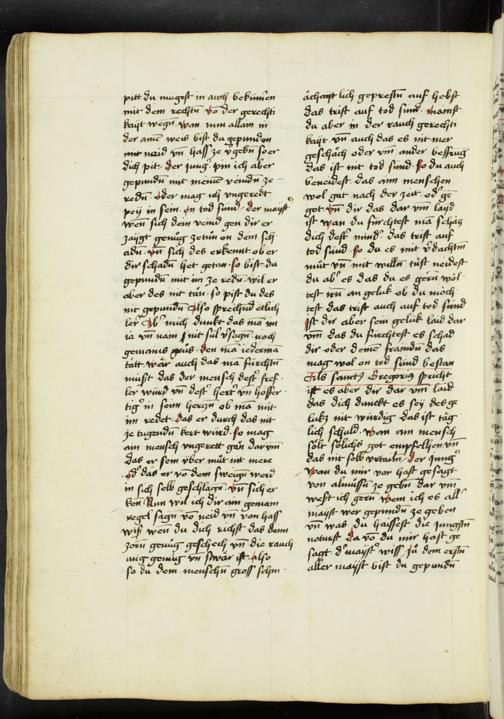 pitt du mugest in auch bekumen
mit dem rechtn vo der gerechti
kayt wegn wan nun allain in
der ainē weis bist du gepundn
mit neid vn hass ze v̓gebn so er
dich pit der jung pin ich aber
gepundn mit meinē veindn ze
redn oder mag ich ungeredt
peÿ in sein in tod sünd der mayst̓
wen sich dein veind gen dir er
zaÿgt genüg zetun von dem sch
adn vn sich des erkennt ob er
dir schadn het getan so bist du
gepundn mit im ze redn wil er
aber des nit tun so pist du des
nit gepundn Also sprechnd etlich
ler ob mich dunkt das mā im
tätt wär auch das mā fürchtn
müst das der mensch dest fref
ler würd vn dest hert vn hoffer
tig in seim herczn ob mā mit
im redet das er durch das nit
ze tugendn kert würd so mag
ain mensch ungerett gen dar vm
das er sein ubel müt nit mere
das er vo dem sweign werd
in sich selb geschlagn vn sich er
ken Nun wil ich dir ain gemain
regel sagn vo neid vn von hass
wiss wen du dich richst das dem
zorn genüg geschech vn die rauch
ung genüg vn swär ist also
so du dem menschn gross schm
ächayt lich geprestn auf hebst
das trift auf tod sünd mainst
du aber in der rach gerechti
kayt vn auch das es nit mer
geschäch oder vm ander besserug
das ist nit tod sünd so du auch
beneidest das ain menschen
wol gat nach der zeit od̓ ge
got vn dir das dar vm laid
ist wan du fürchtest mā schäcz
dich dest mind̓ das trift auf
tod sünd so du es mit v̓dachtm
müt vn mit willn tüst neidest
du ab̓ es das du es gern wöl
test im an geluk ob du möch
test das trift auch auf tod sünd
ist dir aber sein geluk laid dar
vm das du fürchtest es schad
dir oder deinē freundn das
mag wol on tod sünd bestan
Als sanctus Gregorius spricht
ist es aber dir dar vm laid
das dich dunckt es seÿ des ge
lukz nit würdig das ist täg
lich schuld wan ain mensch
sölt sölichs got empfelhen vn
das nit selb urtailn der jung
wan du mir vor hast gesagt
von almüsn ze gebn dar vm
west ich gern wem ich es aller
mayst wer gepundn ze geben
vn was du haissest die jungstn
noturft vo du mir hast ge
sagt d̓ mayst̓ wiss zu dem erstn
aller mayst bist du gepundn